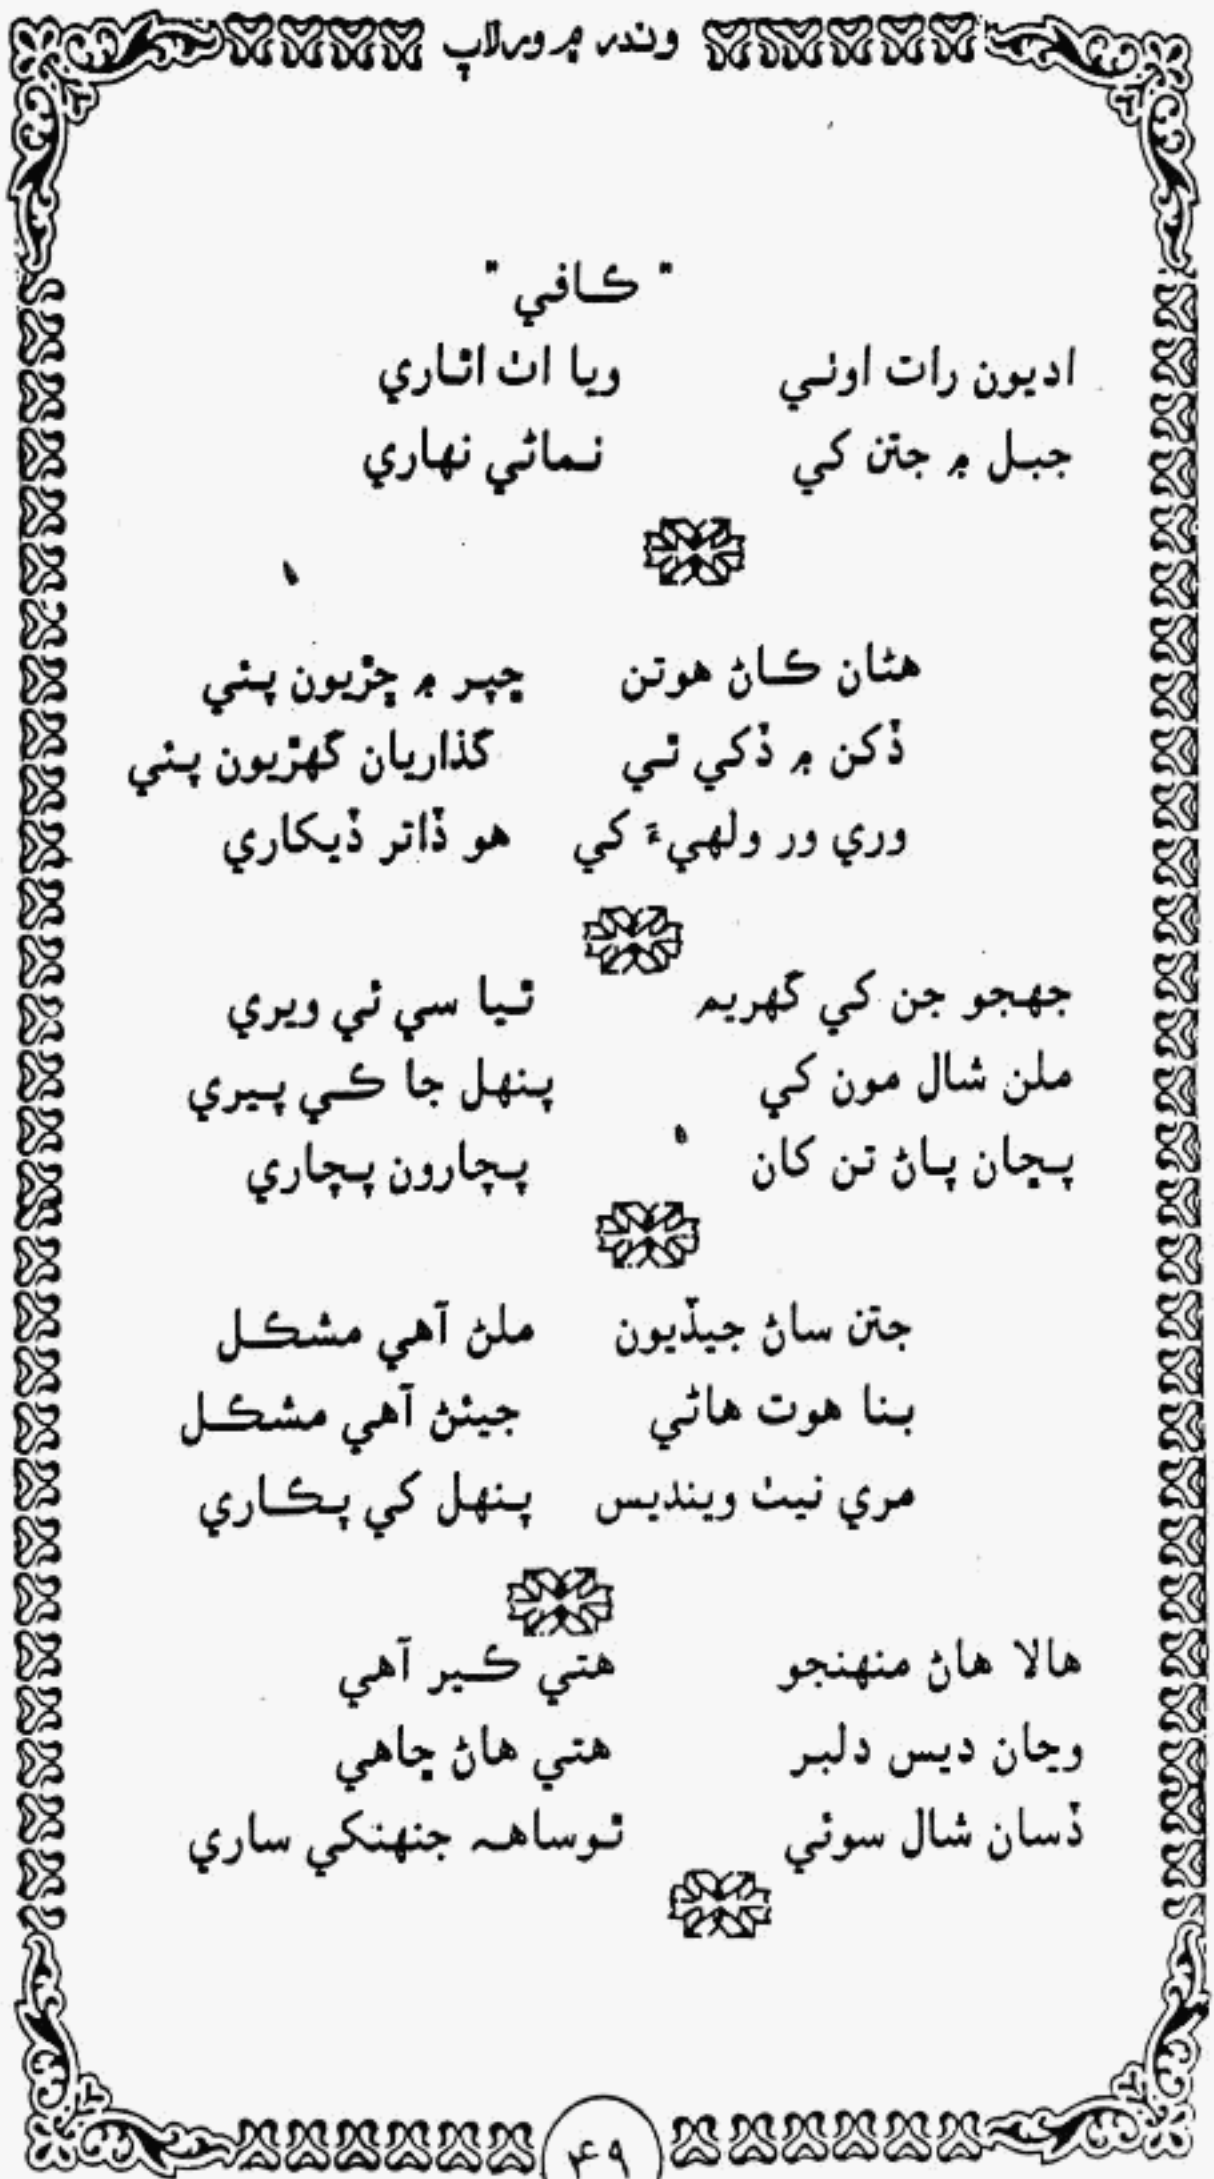 وندر ۾ ورلاپ
" ڪافي "
اديون رات اوٺي ويا اٺ اٿاري
جبل ۾ جتن کي نماڻي نهاري
هٿان ڪاڻ هوتن ڇپر ۾ ڇڙيون پئي
ڏکن ۾ ڏکي ٿي گذاريان گهڙيون پئي
وري ور ولهيءَ کي هو ڏاتر ڏيکاري
جهجو جن کي گهريم ٿيا سي ئي ويري
ملن شال مون کي پنهل جا ڪي پيري
پڇان پاڻ تن کان پڇارون پڇاري
جتن ساڻ جيڏيون ملڻ آهي مشڪل
بنا هوت هاڻي جيئڻ آهي مشڪل
مري نيٺ وينديس پنهل کي پڪاري
هالا هاڻ منهنجو هتي ڪير آهي
وڃان ديس دلبر هتي هاڻ ڇاهي
ڏسان شال سوئي ٿوساهہ جنهنکي ساري
۴۹